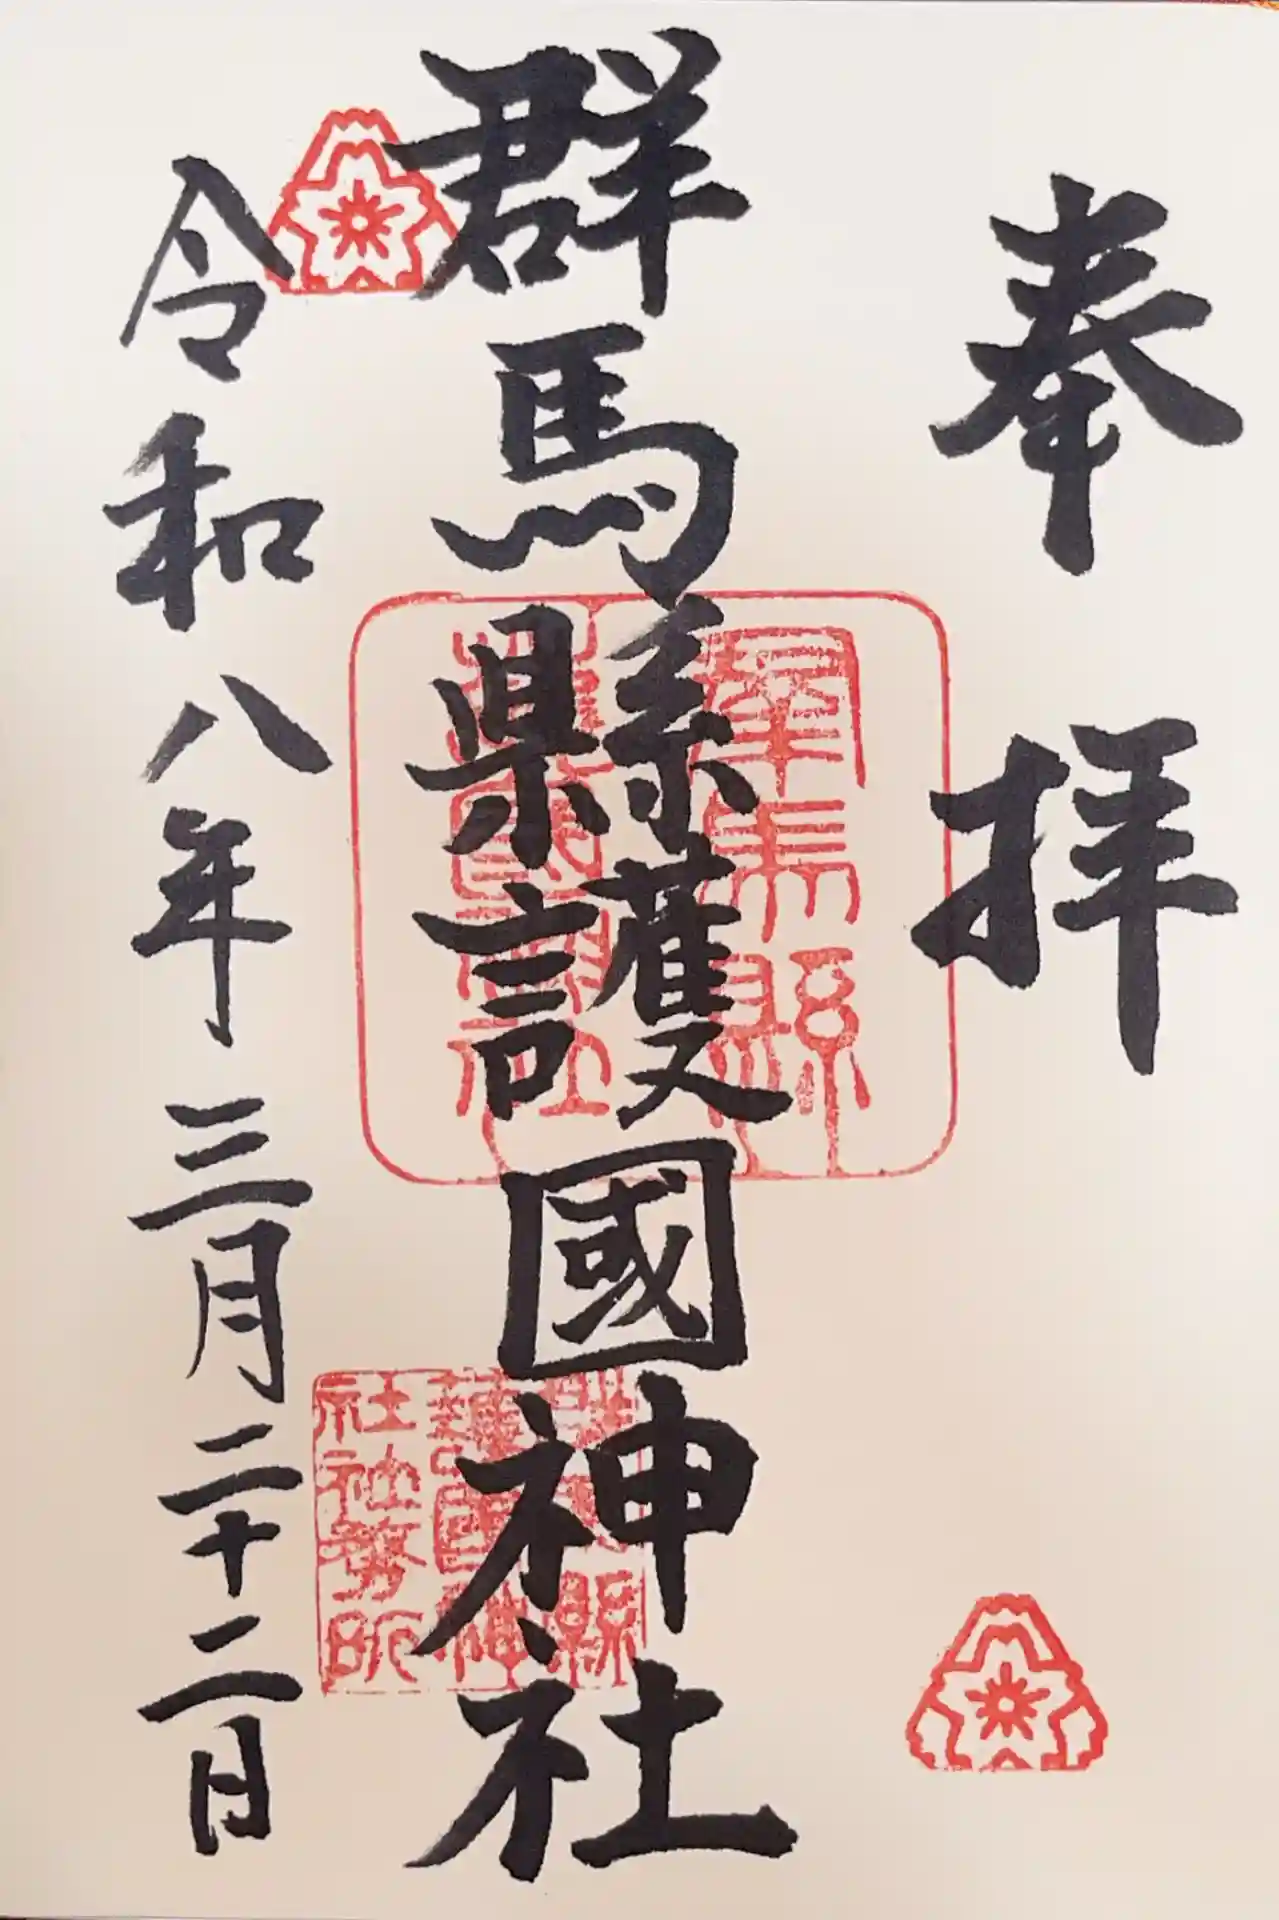 奉拝
群馬縣護國神社
群馬縣
護國神社
群馬縣
護國神
社社務所
令和八年三月二十二日